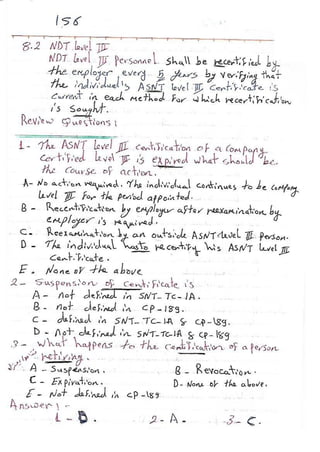 156
8.2 NDT Level III
NDT Level III Personnel shall be recertified by
the employer every 5 years by verifying that
the individual's ASNT Level III Certificate is
current in each Method for which recertification
is sought.
Review Questions:
1- The ASNT Level III certification of a Company
Certified Level III is expired what should be
the course of action.
A- No action required. The individual continues to be company
level III for the period appointed.
B - Recertification by employer after reexamination by
employer is required.
C- Reexamination by an outside ASNT level III person.
D - The individual has to recertify his ASNT Level III
Certificate.
E. None of the above
2- Suspension of certificate is
A- not defined in SNT-TC-1A.
B- not defined in CP-189.
C- defined in SNT-TC-1A & CP-189
D- Not defined in SNT-TC-1A & CP-189.
3- What happens to the certification of a person
retiring.
A - Suspension. B - Revocation.
C - Expiration. D- None of the above.
E - Not defined in CP-189
Answer:-
1- D. 2-A. -3-C.